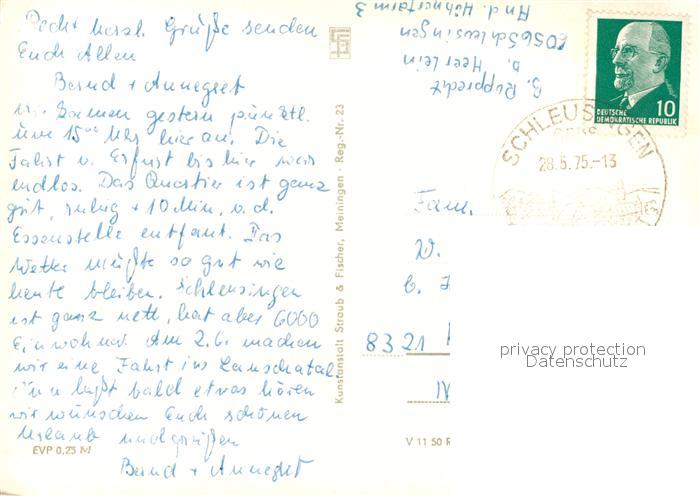 Recht herzl. Grüße senden
Euch Allen
Bernd + Annegret
wir kamen gestern pünktl.
um 15⁰⁰ Uhr hier an. Die
Fahrt v. Erfurt bis hier war
endlos. Das Quartier ist ganz
gut, ruhig + 10 Min. v. d.
Essenstelle entfernt. Das
Wetter müßte so gut wie
heute bleiben. Schleusingen
ist ganz nett, hat aber 6000
Einwohner. Am 2.6. machen
wir eine Fahrt ins Lauschatal.
Nun laßt bald etwas hören
wir wünschen Euch schönen
Urlaub und grüßen
Bernd + Annegret
EVP 0,25 M
Kunstanstalt Straub & Fischer, Meiningen · Reg.-Nr. 23
B. Rupprecht
b. Heerlein
6056 Schleusingen
An d. Hühnerfarm 3
DEUTSCHE
DEMOKRATISCHE REPUBLIK
10
SCHLEUSINGEN
28.5.75.-13
Fam.
W.
8321
V 11 50
privacy protection
Datenschutz